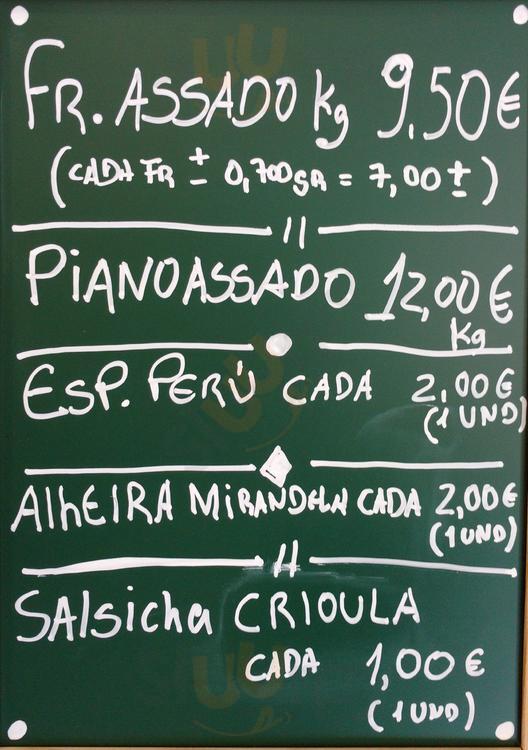 FR. ASSADO kg 9,50€
(CADA FR ± 0,700GR = 7,00±)
PIANO ASSADO 12,00€
Kg
ESP. PERÚ CADA 2,00€
(1 UND)
AlhEIRA MiRANDELA CADA 2,00€
(1 UND)
SAlsicha CRIOULA
CADA 1,00€
(1 UND)